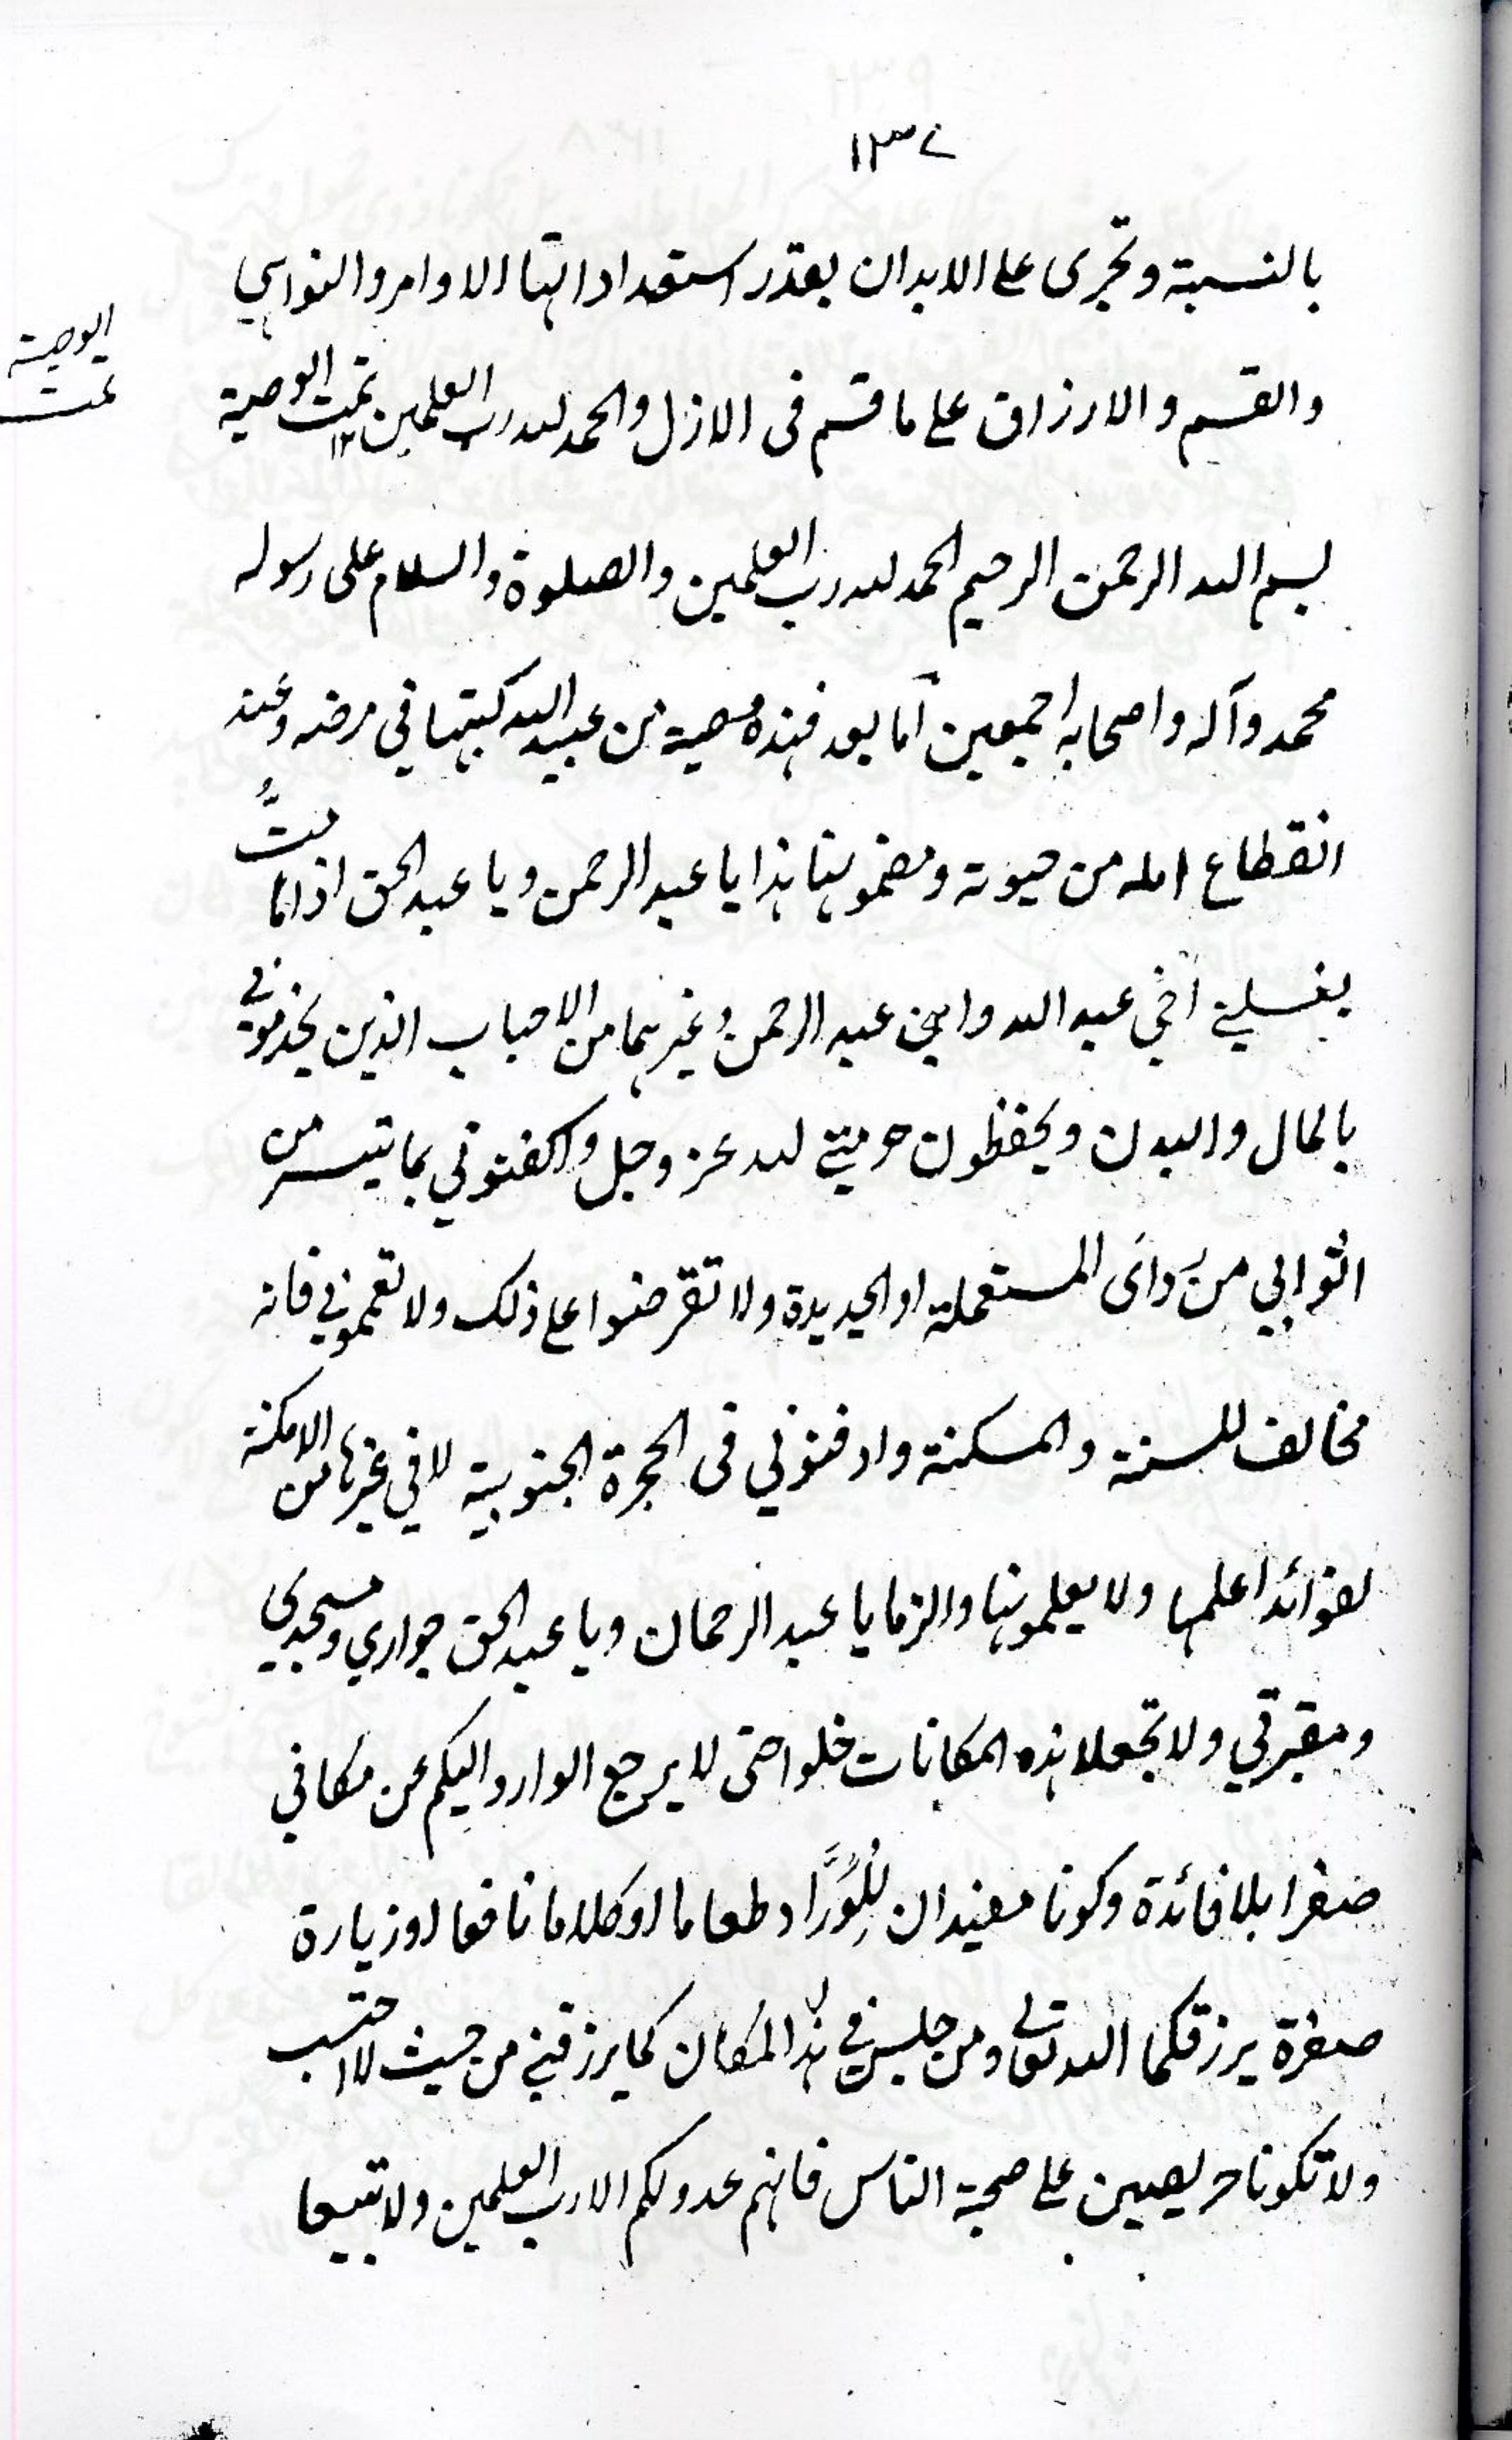 ۱۳۷
بالنسبة وتجرى على الابدان بقدر استعداداتها الاوامر والنواهي
والقسم والارزاق على ما قسم فى الازل والحمد لله رب العلمين تمت الوصية ۱۲
الوصية
تمت
بسم الله الرحمن الرحيم الحمد لله رب العلمين والصلوة والسلام على رسوله
محمد وآله واصحابه اجمعين اما بعد فهذه وصية من عبيد الله كتبها في مرضه وعند
انقطاع امله من حيوته ومضمونها هذا يا عبد الرحمن ويا عبد الحق اذا انا متُّ
يغسلني اخي عبد الله وابني عبد الرحمن وغيرهما من الاحباب الذين يخدموني
بالمال والبدن ويحفظون حرمتي لله عز وجل واكفنوني بما تيسر من
اثوابي من ردائى المستعملة او الجديدة ولا تقرضوا على ذلك ولا تعمموني فانه
مخالف للسنة والمسكنة وادفنوني فى الحجرة الجنوبية لا في غيرها من الامكنة
لفوائد اعلمها ولا يعلمونها والزما يا عبد الرحمان ويا عبد الحق جواري ومسجدي
ومقبرتي ولا تجعلا هذه المكانات خلوا حتى لا يرجع الوارد اليكم عن مكاني
صفرا بلا فائدة وكونا مفيدان لِلوُرَّاد طعاما او كلاما نافعا او زيارة
صفرة يرزقكما الله تعالى ومن جلس في هذا المكان كما يرزقني من حيث لا احتسب
ولا تكونا حريصين على صحبة الناس فانهم عدو لكم الا رب العلمين ولا تتبعا